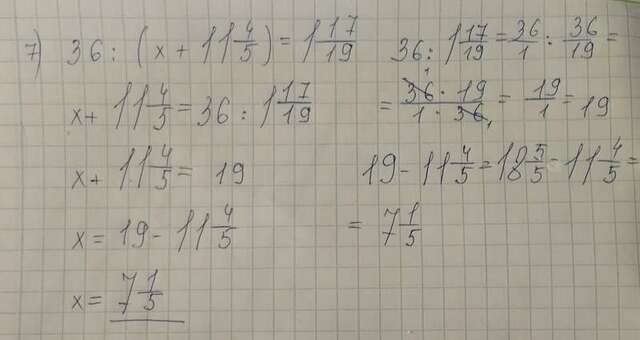 7) 36 : (x + 11 4/5) = 1 17/19
x + 11 4/5 = 36 : 1 17/19
x + 11 4/5 = 19
x = 19 - 11 4/5
x = 7 1/5
36 : 1 17/19 = 36/1 : 36/19 =
= 36 · 19 / 1 · 36 = 19/1 = 19
19 - 11 4/5 = 18 5/5 - 11 4/5 =
= 7 1/5